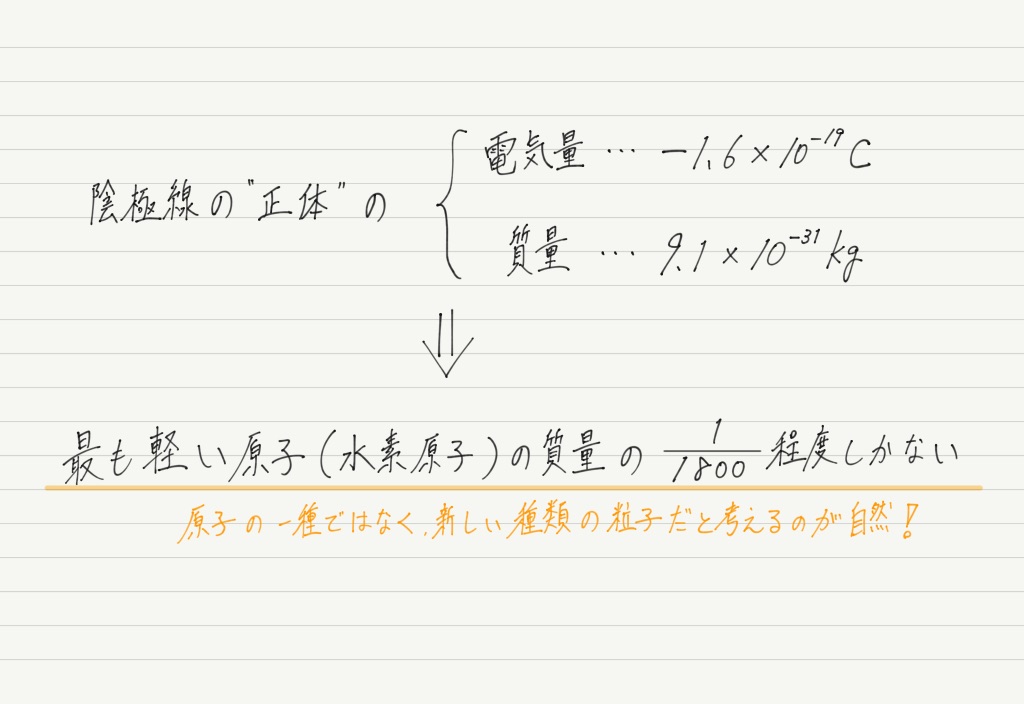 電気量 … −1.6×10⁻¹⁹ C
陰極線の"正体"の
質量 … 9.1×10⁻³¹ kg
最も軽い原子(水素原子)の質量の 1/1800 程度しかない
原子の一種ではなく、新しい種類の粒子だと考えるのが自然!